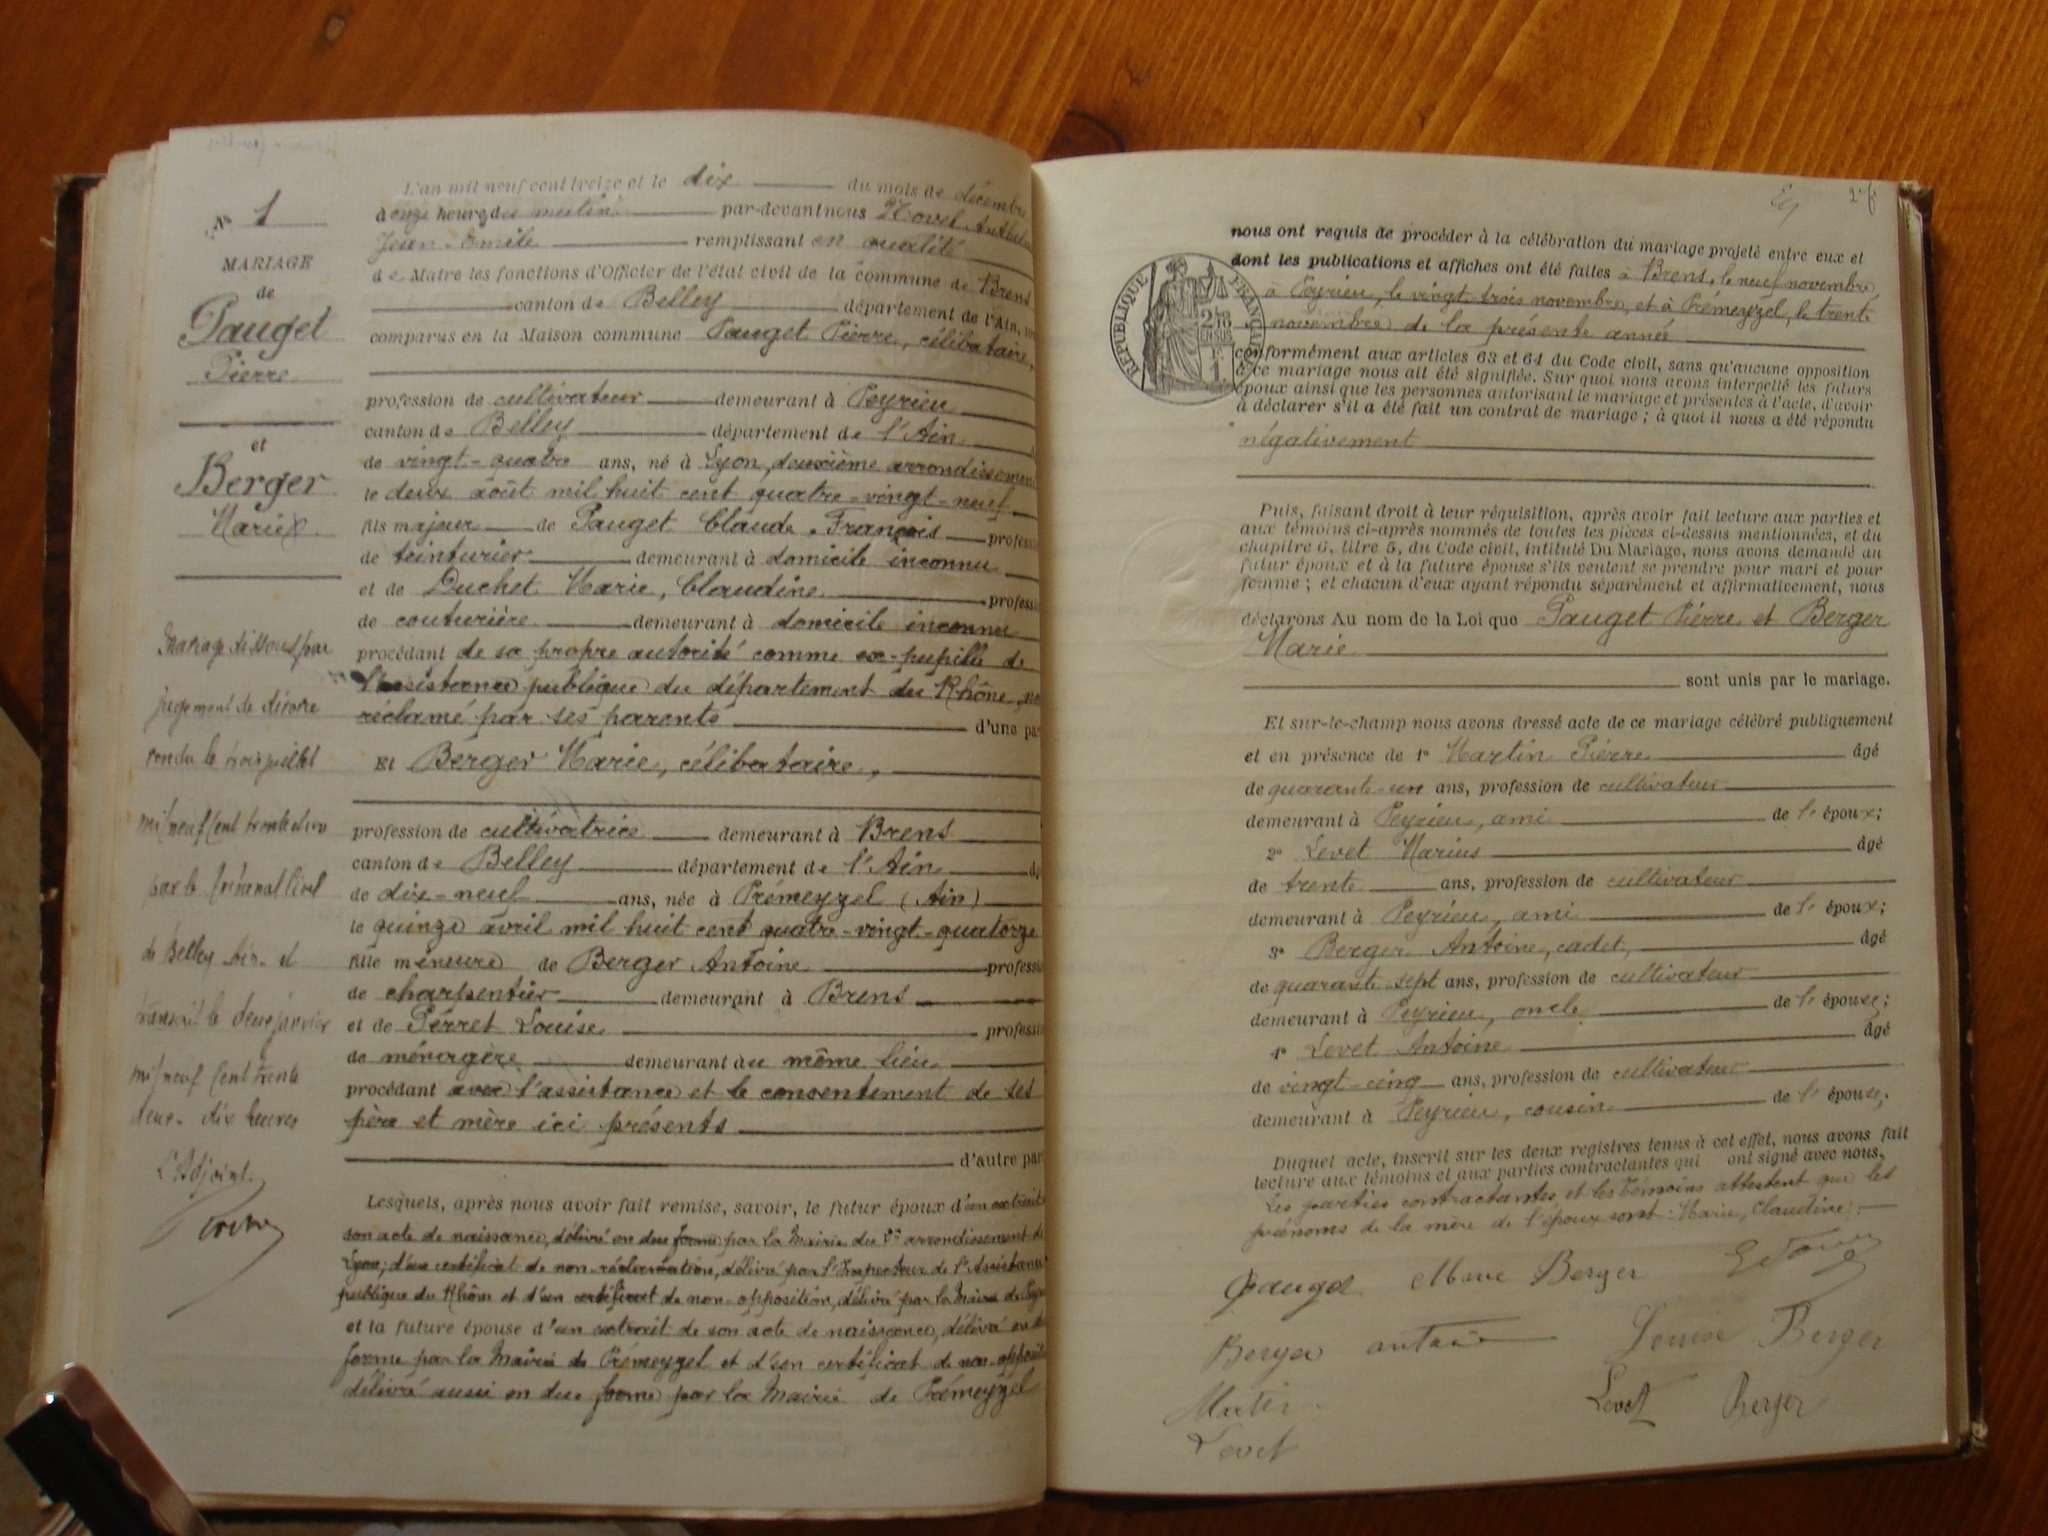 N° 1
MARIAGE
de
Pauget
Pierre
et
Berger
Marie
Mariage dissous par
jugement de divorce
rendu le trois juillet
mil neuf cent trente et un
par le tribunal civil
de Belley Ain et
transcrit le deux janvier
mil neuf cent trente
deux dix heures
L'Adjoint
L'an mil neuf cent treize et le dix du mois de décembre
à onze heures du matin par-devant nous
Jean-Emile remplissant en qualité
de Maire les fonctions d'Officier de l'état civil de la commune de Brens
canton de Belley département de l'Ain, ont
comparus en la Maison commune Pauget Pierre, célibataire,
profession de cultivateur demeurant à Peyrieu
canton de Belley département de l'Ain
de vingt-quatre ans, né à Lyon, deuxième arrondissement
le deux août mil huit cent quatre-vingt-neuf
fils majeur de Pauget Claude-François profession
de teinturier demeurant à domicile inconnu
et de Duchet Marie, Claudine profession
de couturière demeurant à domicile inconnu
procédant de sa propre autorité comme ex-pupille de
l'assistance publique du département du Rhône, non
réclamé par ses parents d'une part
Et Berger Marie, célibataire,
profession de cultivatrice demeurant à Brens
canton de Belley département de l'Ain
de dix-neuf ans, née à Prémeyzel (Ain)
le quinze avril mil huit cent quatre-vingt-quatorze
fille mineure de Berger Antoine profession
de charpentier demeurant à Brens
et de Perret Louise profession
de ménagère demeurant au même lieu
procédant avec l'assistance et le consentement de ses
père et mère ici présents
d'autre part
Lesquels, après nous avoir fait remise, savoir, le futur époux d'un extrait
son acte de naissance, délivré en due forme par la Mairie du 2me arrondissement de
Lyon; d'un certificat de non-réclamation, délivré par l'Inspecteur de l'Assistance
publique du Rhône et d'un certificat de non-opposition, délivré par la Mairie de
et la future épouse d'un extrait de son acte de naissance, délivré en due
forme par la Mairie de Prémeyzel et d'un certificat de non-opposition
délivré aussi en due forme par la Mairie de Prémeyzel
nous ont requis de procéder à la célébration du mariage projeté entre eux et
dont les publications et affiches ont été faites à Brens, le neuf novembre
à Peyrieu, le vingt trois novembre, et à Prémeyzel, le trente
novembre de la présente année
RÉPUBLIQUE FRANÇAISE
2/10
EN SUS
F.
1
conformément aux articles 63 et 64 du Code civil, sans qu'aucune opposition
à ce mariage nous ait été signifiée. Sur quoi nous avons interpellé les futurs
époux ainsi que les personnes autorisant le mariage et présentes à l'acte, d'avoir
à déclarer s'il a été fait un contrat de mariage; à quoi il nous a été répondu
négativement
Puis, faisant droit à leur réquisition, après avoir fait lecture aux parties et
aux témoins ci-après nommés de toutes les pièces ci-dessus mentionnées, et du
chapitre 6, titre 5, du Code civil, intitulé Du Mariage, nous avons demandé au
futur époux et à la future épouse s'ils veulent se prendre pour mari et pour
femme; et chacun d'eux ayant répondu séparément et affirmativement, nous
déclarons Au nom de la Loi que Pauget Pierre et Berger
Marie
sont unis par le mariage.
Et sur-le-champ nous avons dressé acte de ce mariage célébré publiquement
et en présence de 1° Martin Pierre âgé
de quarante-un ans, profession de cultivateur
demeurant à Peyrieu, ami de l'époux;
2° Levet Marius âgé
de trente ans, profession de cultivateur
demeurant à Peyrieu, ami de l'époux;
3° Berger Antoine, cadet, âgé
de quarante-sept ans, profession de cultivateur
demeurant à Peyrieu, oncle de l'épouse;
4° Levet Antoine âgé
de vingt-cinq ans, profession de cultivateur
demeurant à Peyrieu, cousin de l'épouse;
Duquel acte, inscrit sur les deux registres tenus à cet effet, nous avons fait
lecture aux témoins et aux parties contractantes qui ont signé avec nous.
Les parties contractantes et les témoins attestent que les
prénoms de la mère de l'époux sont: Marie, Claudine.
Pauget Marie Berger
Berger antoine Louise Berger
Martin Levet Berger
Levet